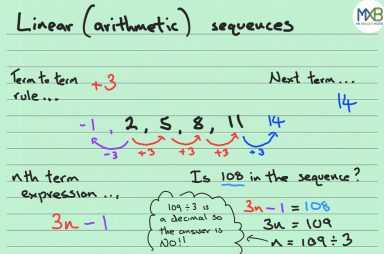 Linear (arithmetic) sequences
MXB
Term to term
rule...
+3
Next term...
14
-1, 2, 5, 8, 11 14
-3 +3 +3 +3 +3
nth term
expression...
3n - 1
Is 108 in the sequence?
109 ÷ 3 is
a decimal so
the answer is
NO!!
3n - 1 = 108
3n = 109
n = 109 ÷ 3